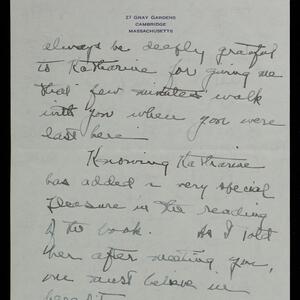 27 GRAY GARDENS
CAMBRIDGE
MASSACHUSETTS
always be deeply grateful
to Katharine for giving me
that few minutes walk
with you when you were
last here.
Knowing Katharine
has added a very special
pleasure in the reading
of the book. As I told
her after meeting you,
one must believe in